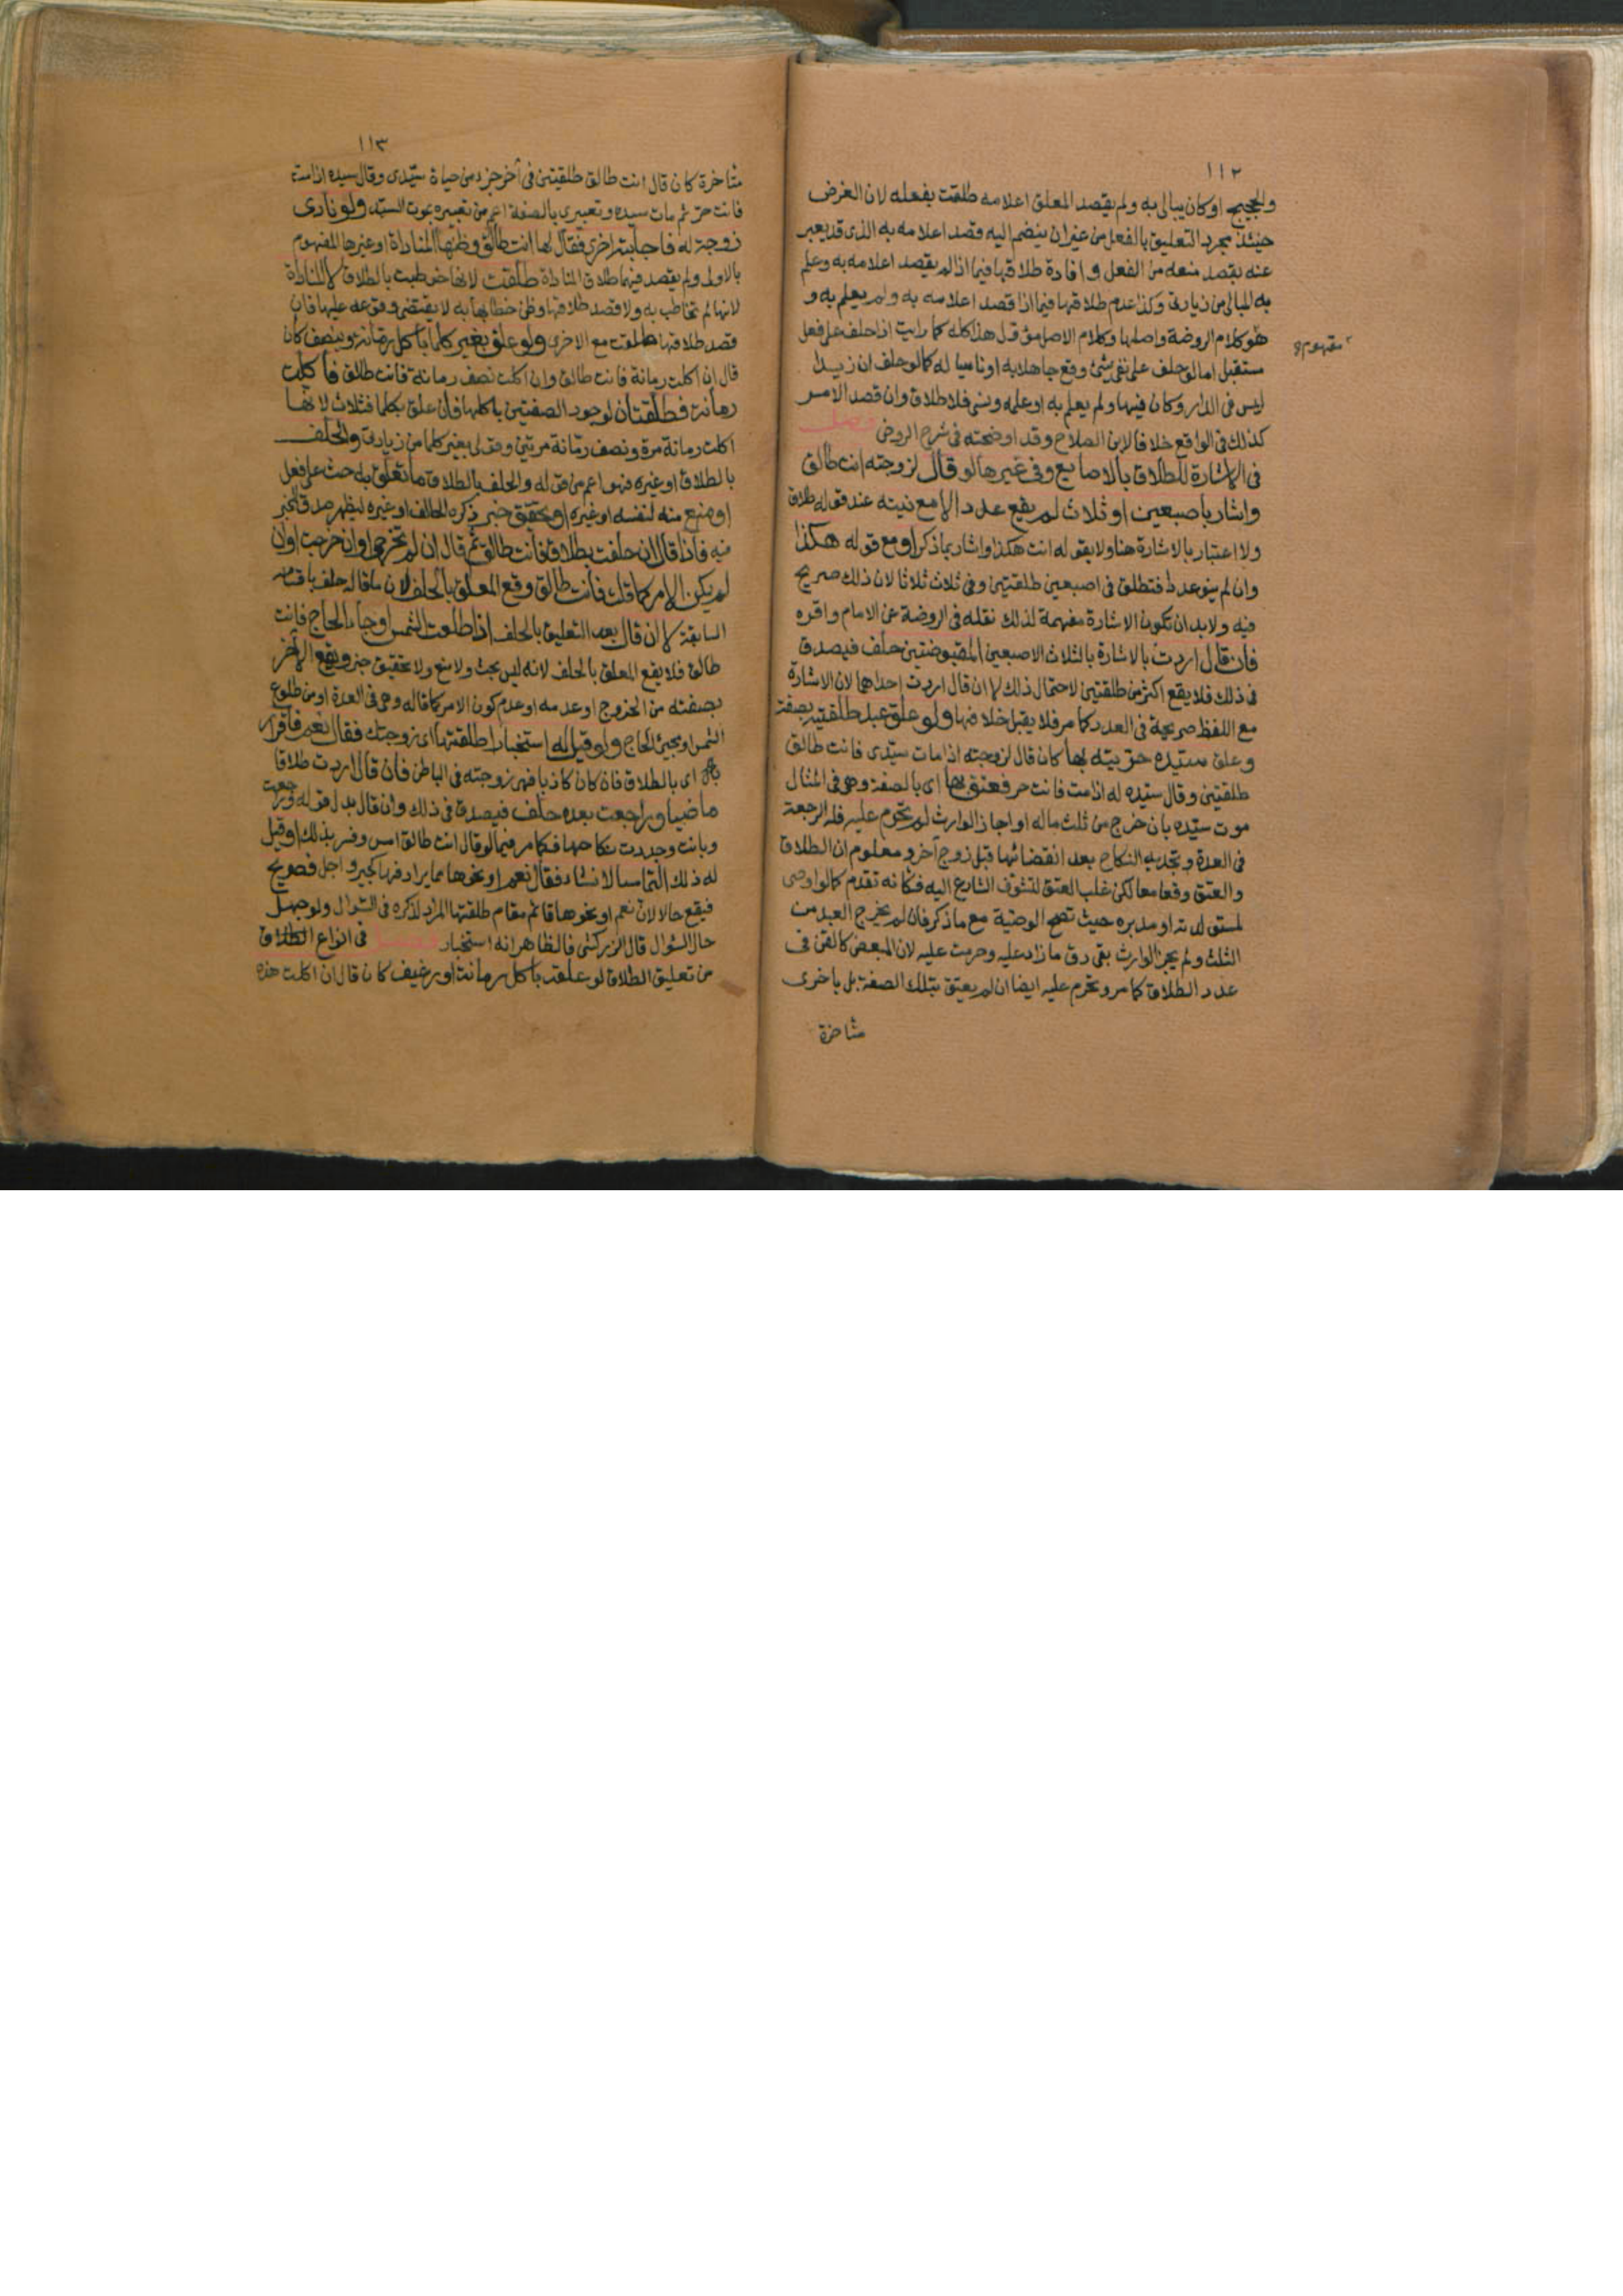 ١١٢
والحجيج او كان يبالي به ولم يقصد المعلق اعلامه طلقت بفعله لان الغرض
حينئذ مجرد التعليق بالفعل من غير ان ينضم اليه قصد اعلامه به الذى قد يعبر
عنه بقصد منعه من الفعل وافادة طلاقها فيما اذا لم يقصد اعلامه به وعلم
به المبالى من زيادتى وكذا عدم طلاقها فيما اذا قصد اعلامه به ولم يعلم به و
هو كلام الروضة واصلها وكلام الاصل مؤول هذا كله كما رايت اذا حلف على فعل
مفهوم
مستقبل اما لو حلف على نفى شئ وقع جاهلا به او ناسيا له كما لو حلف ان زيدا
ليس فى الدار وكان فيها ولم يعلم به او علمه ونسى فلا طلاق وان قصد الامر
كذلك فى الواقع خلافا لابن الصلاح وقد اوضحته فى شرح الروض فصل
فى الاشارة للطلاق بالاصابع وفى غيرها لو قال لزوجته انت طالق
واشار باصبعين او ثلاث لم يقع عدد الا مع نيته عند قوله طلاق
ولا اعتبار بالاشارة هنا ولا بقوله انت هكذا واشار بما ذكر او مع قوله هكذا
وان لم ينو عددا فتطلق فى اصبعين طلقتين وفى ثلاث ثلاثا لان ذلك صريح
فيه ولا بد ان تكون الاشارة مفهمة لذلك نقله فى الروضة عن الامام واقره
فان قال اردت بالاشارة بالثلاث الاصبعين المقبوضتين حلف فيصدق
فى ذلك فلا يقع اكثر من طلقتين لاحتمال ذلك لا ان قال اردت احداها لان الاشارة
مع اللفظ صريحة فى العدد كما مر فلا يقبل خلافها ولو علق عبد طلقتيه بصفة
وعلق سيده حريته بها كان قال لزوجته اذا مات سيدى فانت طالق
طلقتين وقال سيده له اذا مت فانت حر فعتق بها اى بالصفة وهى فى المثال
موت سيده بان خرج من ثلث ماله او اجاز الوارث لم تحرم عليه فله الرجعة
فى العدة وتجديد النكاح بعد انقضائها قبل زوج آخر ومعلوم ان الطلاق
والعتق وقعا معا لكن غلب العتق لتشوف الشارع اليه فكانه تقدم كما لو اوصى
لمستولدته او مدبره حيث تصح الوصية مع ما ذكر فان لم يخرج العبد من
الثلث ولم يجز الوارث بقى رق ما زاد عليه وحرمت عليه لان المبعض كالقن فى
عدد الطلاق كما مر وتحرم عليه ايضا ان لم يعتق بتلك الصفة بل باخرى
متاخرة
١١٣
متاخرة كان قال انت طالق طلقتين فى آخر جزء من حياة سيدى وقال سيده اذا مت
فانت حر ثم مات سيده وتعبيرى بالصفة اعم من تعبيره بموت السيد ولو نادى
زوجة له فاجابته اخرى فقال لها انت طالق وظنها المناداة او غيرها المفهوم
بالاولى ولم يقصد فيها طلاق المناداة طلقت لانها خوطبت بالطلاق لا المناداة
لانها لم تخاطب به ولا قصد طلاقها وظن خطابها به لا يقتضى وقوعه عليها فان
قصد طلاقها طلقت مع الاخرى ولو علق بغير كلما باكل رمانة وبنصف كان
قال ان اكلت رمانة فانت طالق وان اكلت نصف رمانة فانت طالق فاكلت
رمانة فطلقتان لوجود الصفتين باكلها فان علق بكلما فثلاث لانها
اكلت رمانة مرة ونصف رمانة مرتين وقولى بغير كلما من زيادتى والحلف
بالطلاق او غيره فهو اعم من قوله والحلف بالطلاق ما تعلق به حث على فعل
او منع منه لنفسه او غيره او تحقيق خبر ذكره الحالف او غيره ليظهر صدق المخبر
فيه فاذا قال ان حلفت بطلاق فانت طالق ثم قال ان لم تخرجى او ان خرجت او ان
لم يكن الامر كما قلت فانت طالق وقع المعلق بالحلف لان ما قاله حلف باقسامه
السابقة لا ان قال بعد التعليق بالحلف اذا طلعت الشمس او جاء الحاج فانت
طالق فلا يقع المعلق بالحلف لانه ليس بحث ولا منع ولا تحقيق خبر ويقع الآخر
بصفته من الخروج او عدمه او عدم كون الامر كما قاله وهى فى العدة او من طلوع
الشمس او مجئ الحاج ولو قيل له استخبارا اطلقتها اى زوجتك فقال نعم فاقرار
به اى بالطلاق فان كان كاذبا فهى زوجته فى الباطن فان قال اردت طلاقا
ماضيا وراجعت بعده حلف فيصدق فى ذلك وان قال بدل قوله وراجعت
وبانت وجددت نكاحها فكما مر فيما لو قال انت طالق امس وفسر بذلك او قيل
له ذلك التماسا لانشاء فقال نعم او نحوها مما يرادفها كجير واجل فصريح
فيقع حالا لان نعم او نحوها قائم مقام طلقتها المراد لذكره فى السؤال ولو جهل
حال السؤال قال الزركشى فالظاهر انه استخبار فصل فى انواع الطلاق
من تعليق الطلاق لو علقه باكل رمانة او رغيف كان قال ان اكلت هذه